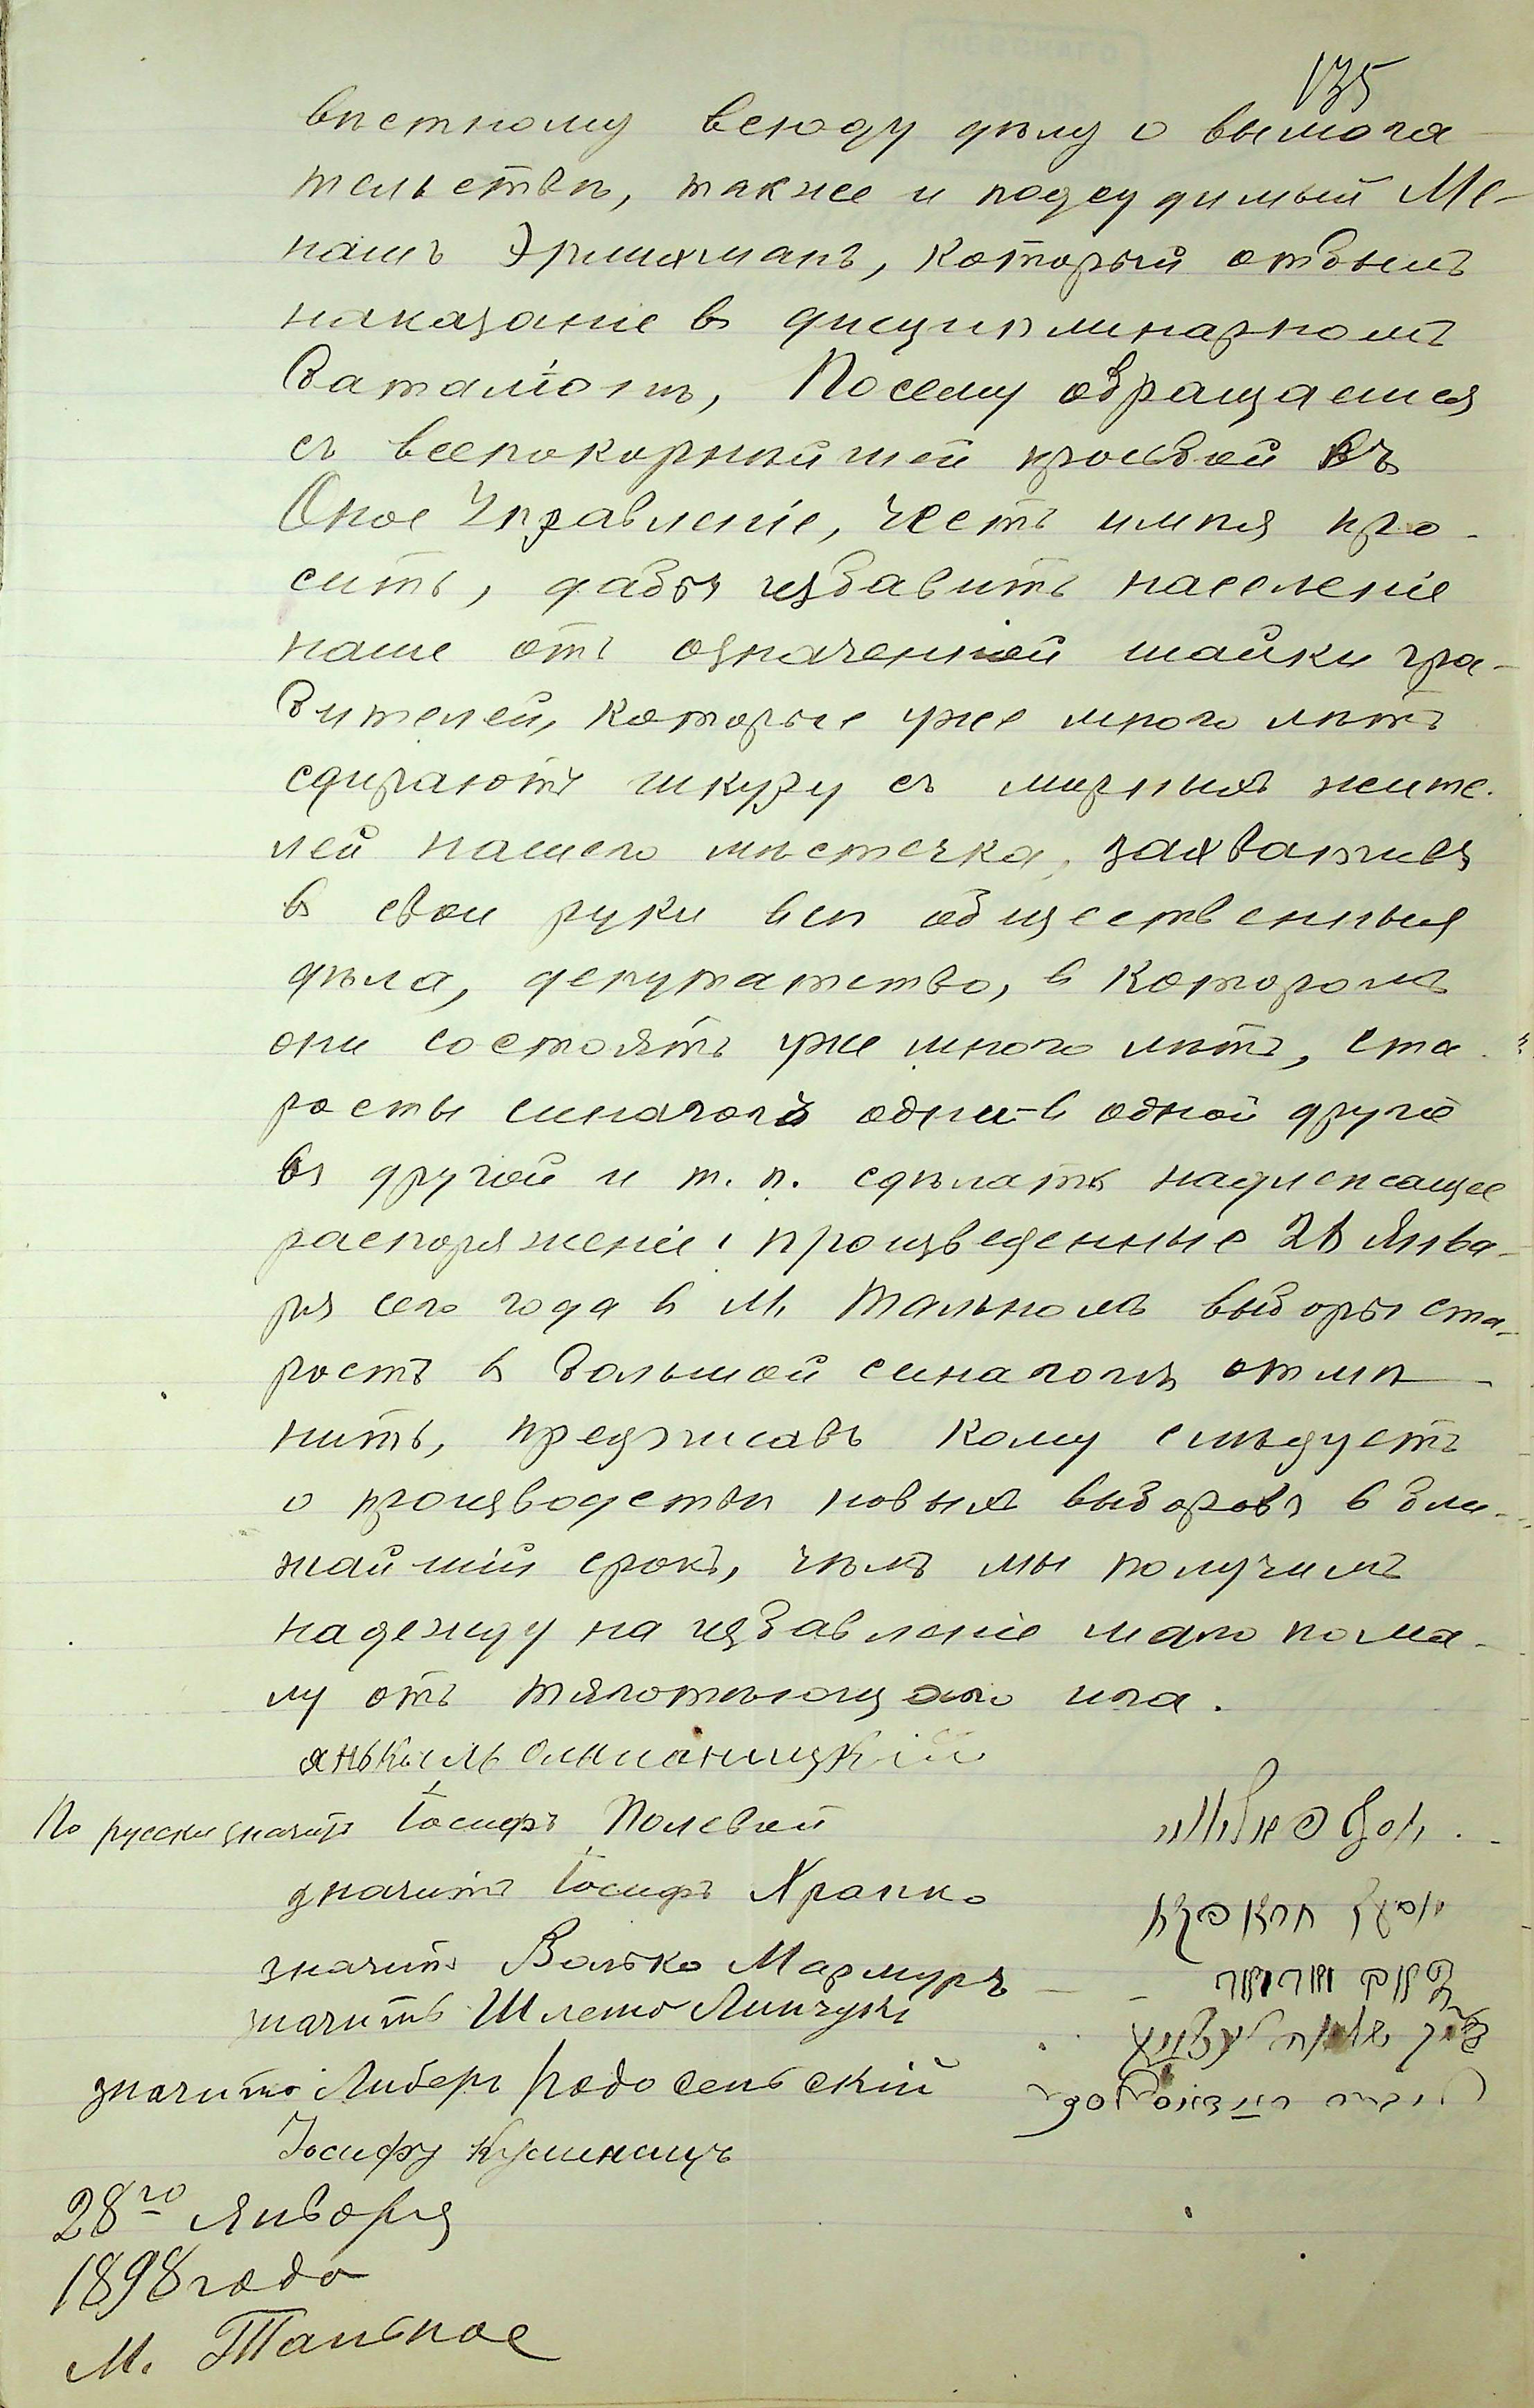 135
вѣстному всюду дѣлу о вымога-
тельствѣ, также и подсудимый Ме-
нашъ Эрлихманъ, который отбылъ
наказаніе въ дисциплинарномъ
баталіонѣ, Посему обращаемся
съ всепокорнѣйшей просьбой въ
Оное Управленіе, честь имѣя про-
сить, дабы избавить населеніе
наше отъ означенной шайки гра-
бителей, которые уже много лѣтъ
сдираютъ шкуру съ мирныхъ жите-
лей нашего мѣстечка, захвативъ
въ свои руки всѣ общественныя
дѣла, депутатство, в которомъ
они состоятъ уже много лѣтъ, ста-
росты синагогъ одни-в одной другіе
въ другой и т. п. сдѣлать надлежащее
распоряженіе, произведенные 21 Янва-
ря сего года в м. Тальномъ выборы ста-
ростъ въ большой синагогѣ отмѣ-
нить, предписавъ кому слѣдуетъ
о производствѣ новыхъ выборовъ в бли-
жайшій срокъ, чѣмъ мы получимъ
надежду на избавленіе мало пома-
лу отъ тяготѣющаго ига.
По русски значитъ Іосифъ Полевой
значитъ Іосифъ Храпко
значитъ Волько Мармуръ
значитъ Шлемо Липчукъ
значитъ Либеръ Радосельскій
28го Января
1898 года
м. Тальное